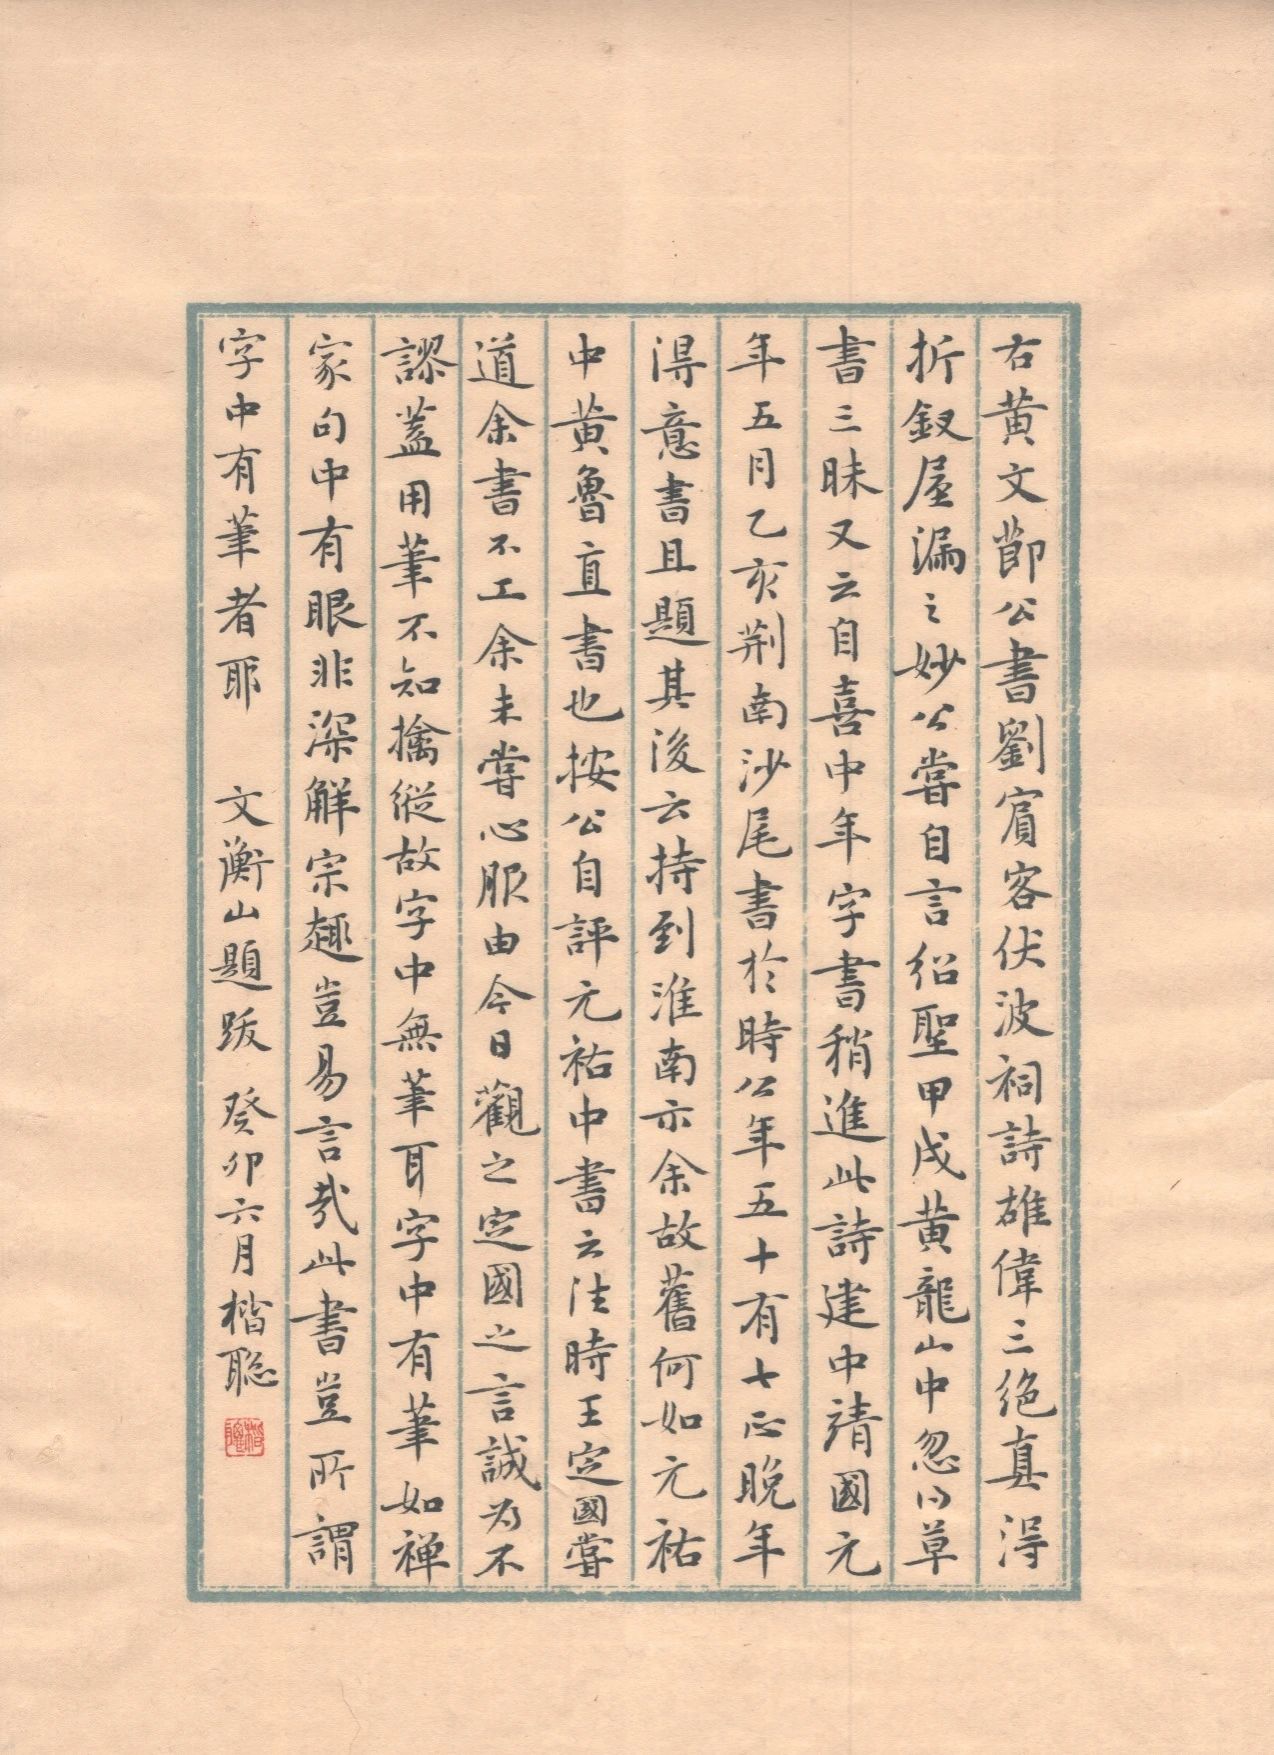 右黄文節公書劉賓客伏波祠詩雄偉三絶真淂
折釵屋漏之妙公嘗自言紹聖甲戌黄龍山中忽得草
書三昧又云自喜中年字書稍進此詩建中靖國元
年五月乙亥荆南沙尾書於時公年五十有七正晚年
淂意書且題其後云持到淮南示余故舊何如元祐
中黄魯直書也按公自評元祐中書云往時王定國嘗
道余書不工余未嘗心服由今日觀之定國之言誠為不
謬蓋用筆不知擒縱故字中無筆耳字中有筆如禅
家句中有眼非深解宗趣豈易言哉此書豈所謂
字中有筆者耶 文衡山題跋 癸卯六月楷聡